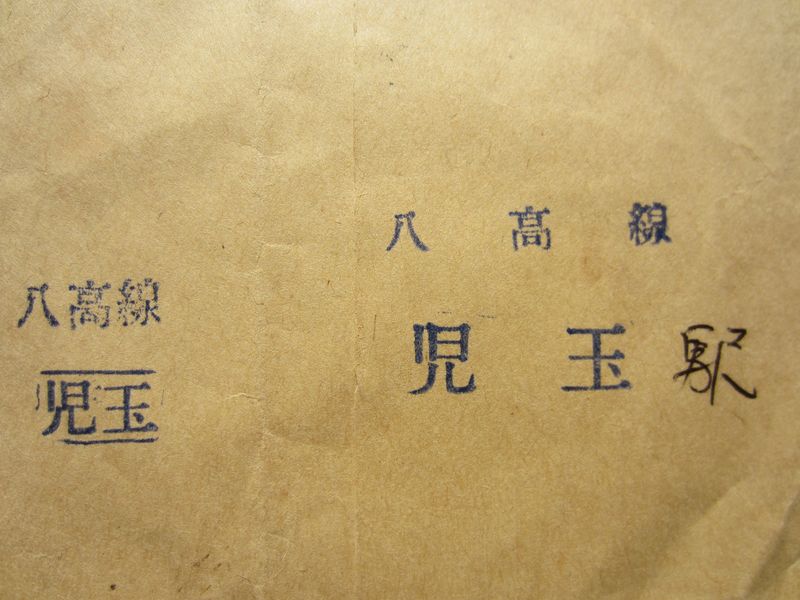 八高線
児玉
八高線
児玉駅